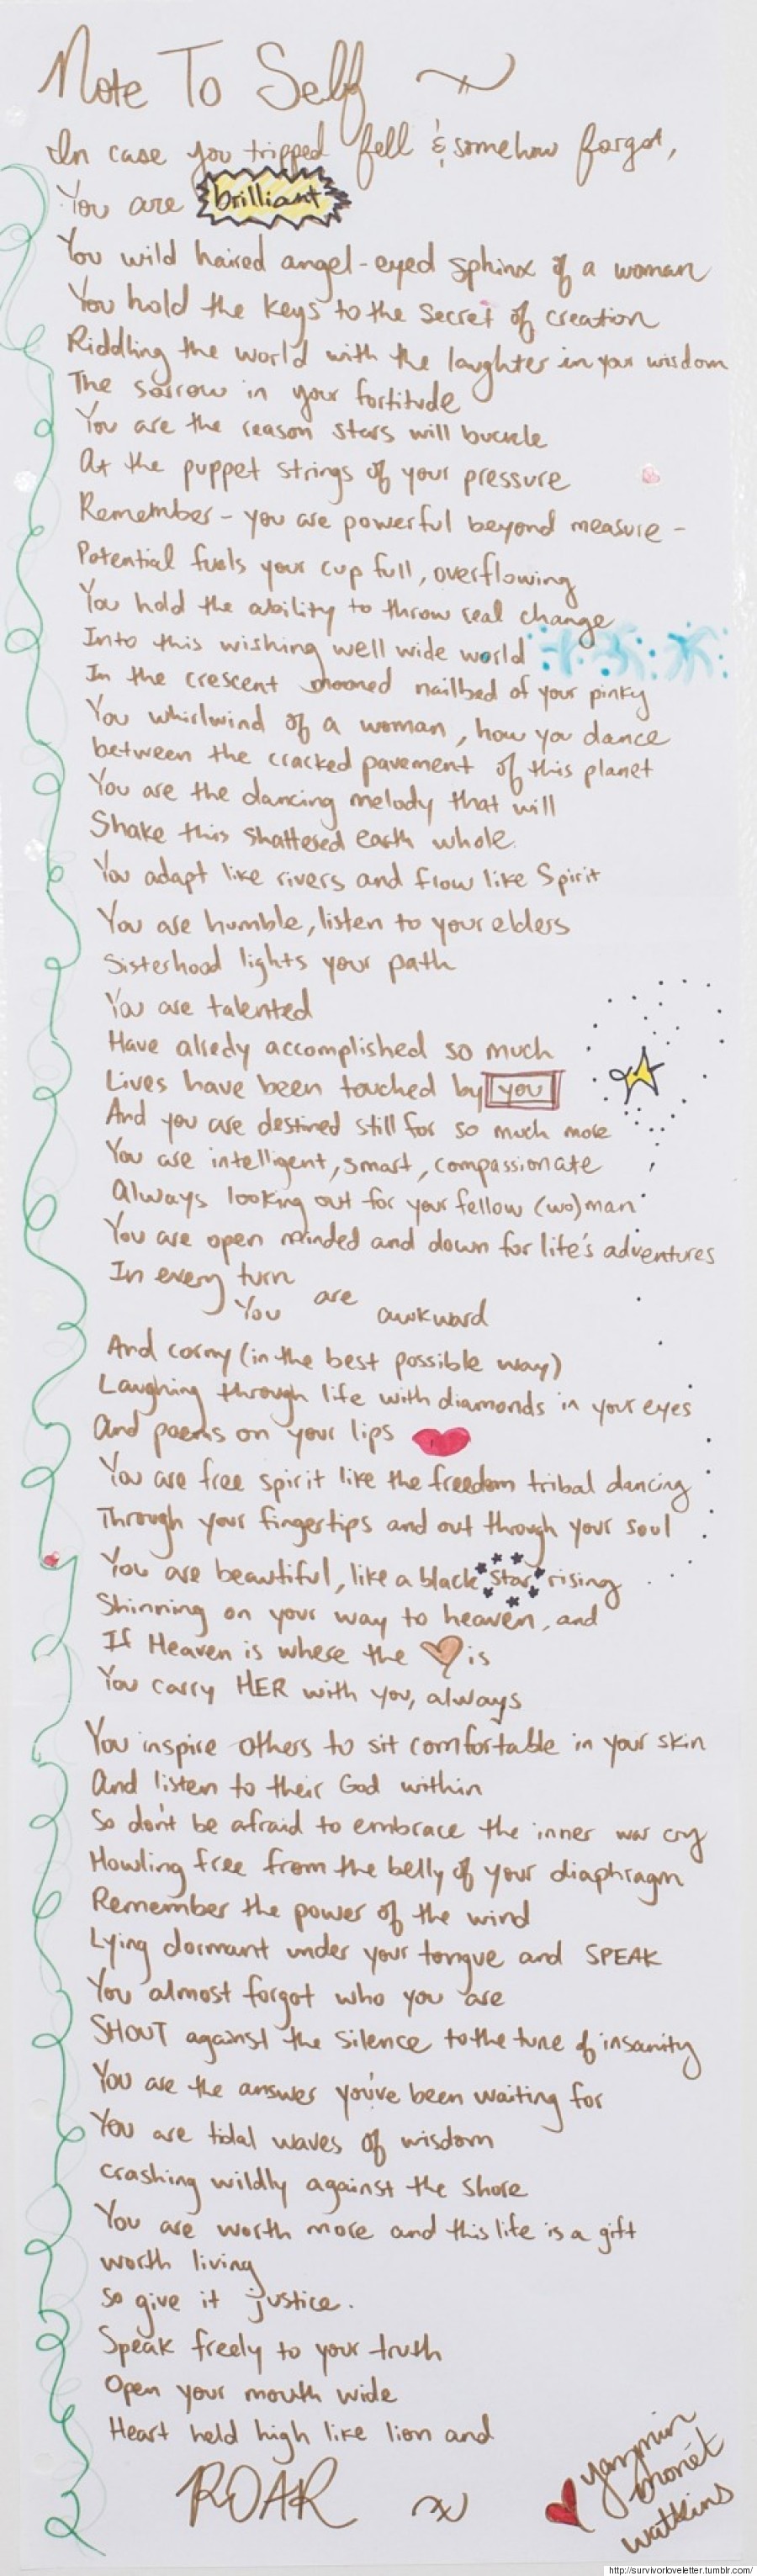 Note To Self
In case you tripped fell & somehow forgot,
You are brilliant
You wild haired angel-eyed sphinx of a woman
You hold the keys to the secret of creation
Riddling the world with the laughter in your wisdom
The sorrow in your fortitude
You are the reason stars will buckle
At the puppet strings of your pressure
Remember - you are powerful beyond measure -
Potential fuels your cup full, overflowing
You hold the ability to throw real change
Into this wishing well wide world
In the crescent mooned nailbed of your pinky
You whirlwind of a woman, how you dance
between the cracked pavement of this planet
You are the dancing melody that will
Shake this shattered earth whole.
You adapt like rivers and flow like Spirit
You are humble, listen to your elders
Sisterhood lights your path
You are talented
Have alredy accomplished so much
Lives have been touched by you
And you are destined still for so much more
You are intelligent, smart, compassionate
Always looking out for your fellow (wo)man
You are open minded and down for life's adventures
In every turn
You are awkward
And corny (in the best possible way)
Laughing through life with diamonds in your eyes
And poems on your lips
You are free spirit like the freedom tribal dancing
Through your fingertips and out through your soul
You are beautiful, like a black star rising
Shinning on your way to heaven, and
If Heaven is where the is
You carry HER with you, always
You inspire others to sit comfortable in your skin
And listen to their God within
So don't be afraid to embrace the inner war cry
Howling free from the belly of your diaphragm
Remember the power of the wind
Lying dormant under your tongue and SPEAK
You almost forgot who you are
SHOUT against the silence to the tune of insanity
You are the answer you've been waiting for
You are tidal waves of wisdom
crashing wildly against the shore
You are worth more and this life is a gift
worth living
So give it justice.
Speak freely to your truth
Open your mouth wide
Heart held high like lion and
ROAR
yazmin
monét
watkins
http://survivorloveletter.tumblr.com/